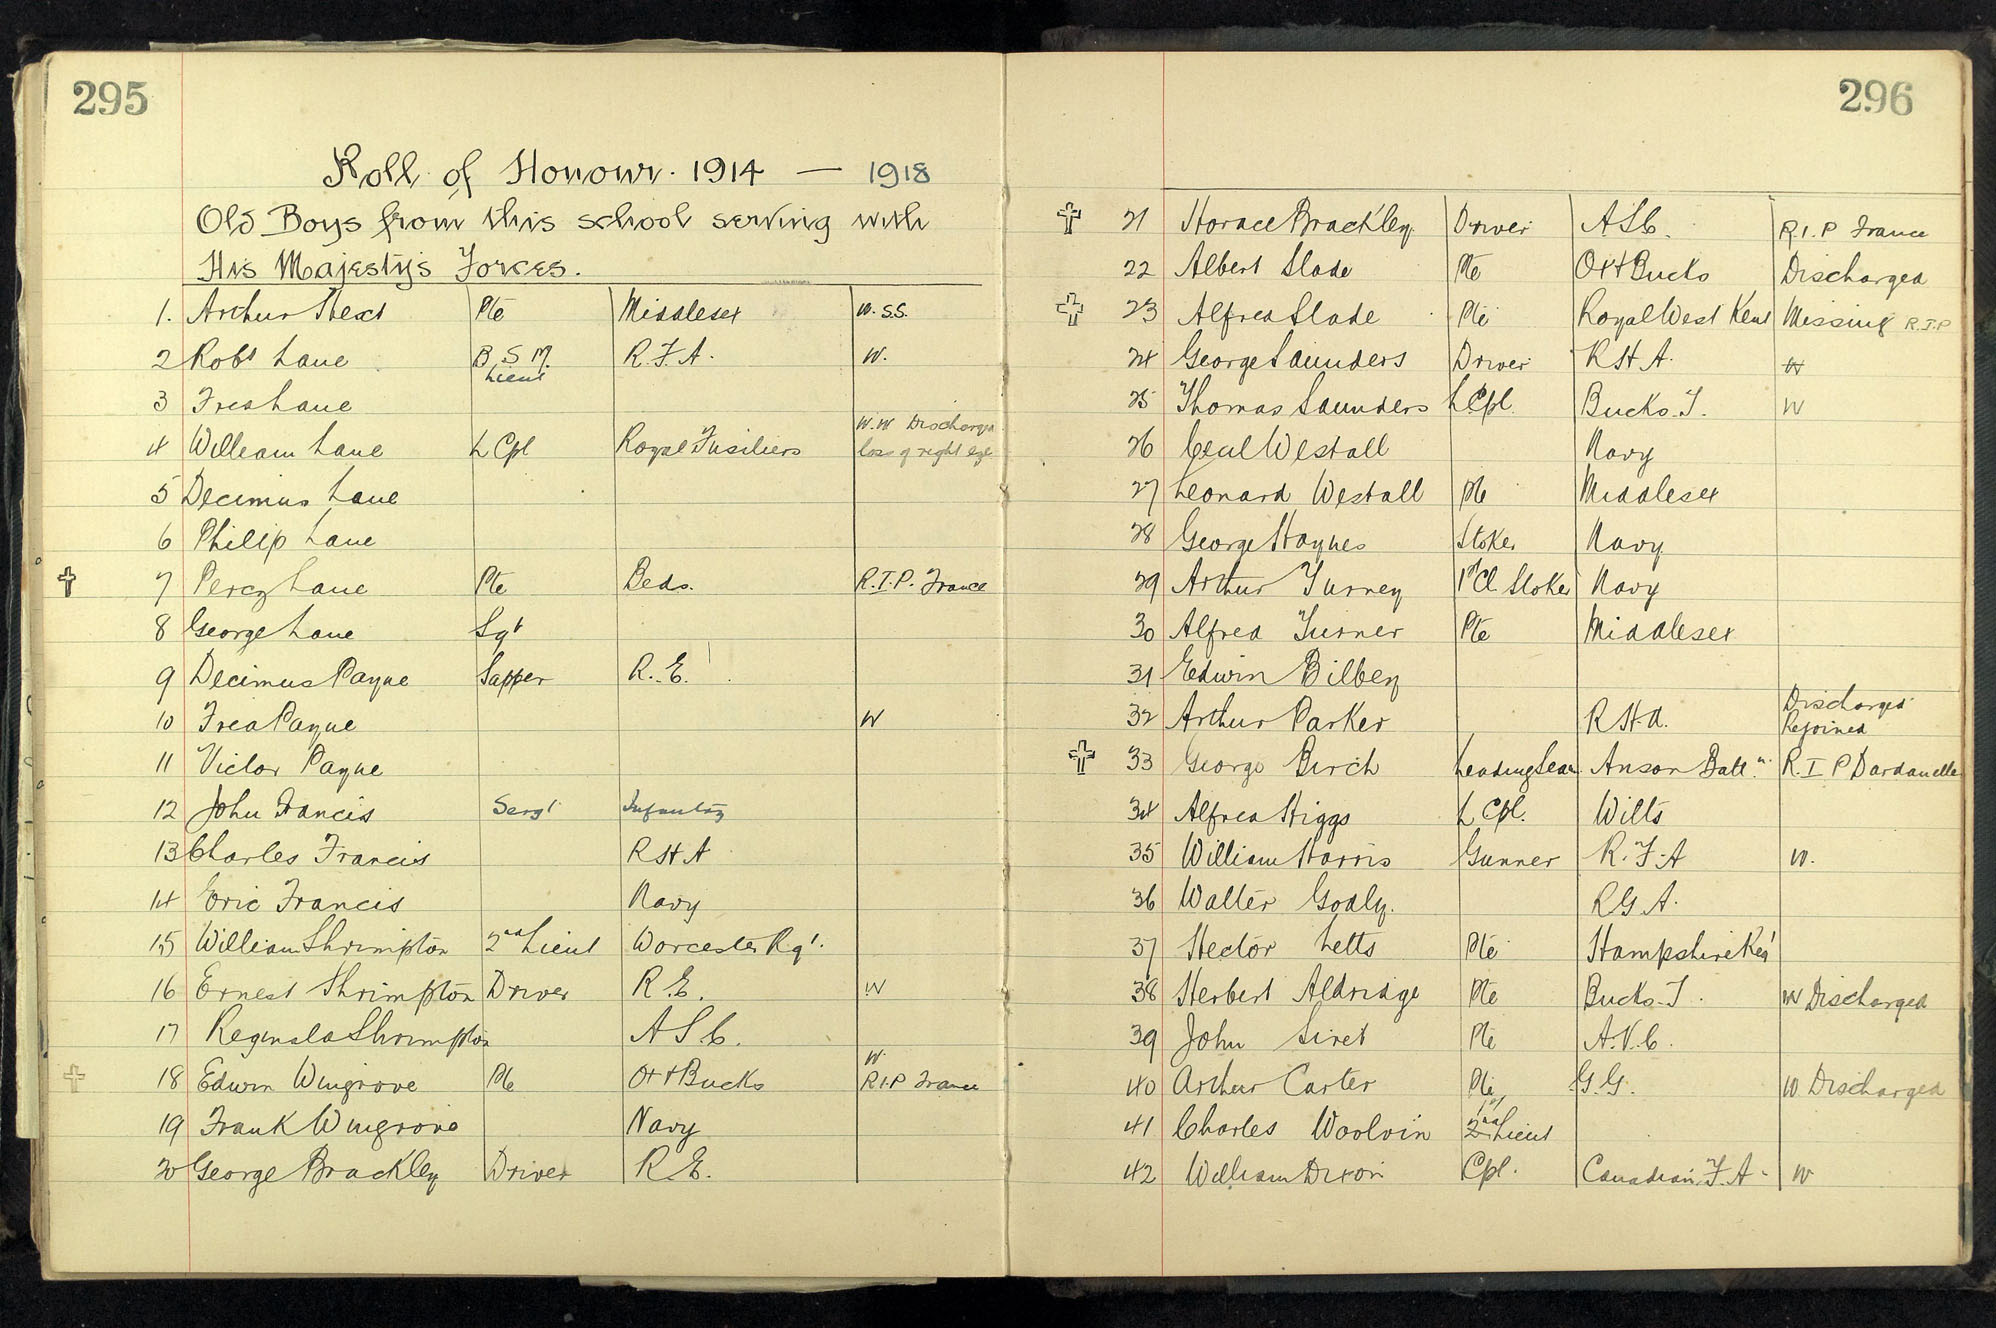 295
Roll of Honour. 1914 — 1918
Old Boys from this school serving with
His Majesty's Forces.
1. Arthur Pte Middlesex W. S.S.
2 Robt Lane B.S.M. Lieut R.F.A. W.
3 Fred Lane
4 William Lane L Cpl Royal Fusiliers W.W Discharged loss of right eye
5 Decimus Lane
6 Philip Lane
7 Percy Lane Pte Beds. R.I.P. France
8 George Lane Sgt
9 Decimus Payne Sapper R.E.
10 Fred Payne W
11 Victor Payne
12 John Francis Sergt Infantry
13 Charles Francis RHA
14 Eric Francis Navy
15 William Shrimpton 2nd Lieut Worcester Rgt.
16 Ernest Shrimpton Driver R.E. W
17 Reginald Shrimpton A S C.
18 Edwin Wingrove Pte Ox + Bucks W. R.I.P France
19 Frank Wingrove Navy
20 George Brackley Driver R.E.
296
21 Horace Brackley Driver ASC. R.I.P France
22 Albert Slade Pte Ox + Bucks Discharged
23 Alfred Slade Pte Royal West Kent Missing R.I.P
24 George Saunders Driver RHA. W
25 Thomas Saunders L Cpl. Bucks. T. W
26 Cecil Westall Navy
27 Leonard Westall Pte Middlesex
28 George Haynes Stoker Navy
29 Arthur Turney 1st Cl. Stoker Navy
30 Alfred Turner Pte Middlesex
31 Edwin Bilbey
32 Arthur Parker RHA. Discharged Rejoined
33 George Birch Leading Sean. Anson Batt.n R.I P Dardanelles
34 Alfred Higgs L Cpl. Wilts
35 William Harris Gunner R.F.A W.
36 Walter Godly. RGA.
37 Hector Letts Pte Hampshire Regt
38 Herbert Aldridge Pte Bucks. T. W Discharged
39 John Siret Pte A.V.C.
40 Arthur Carter Pte G.G. W Discharged
41 Charles Woolvin 1st 2nd Lieut
42 William Dixon Cpl. Canadian F.A. W